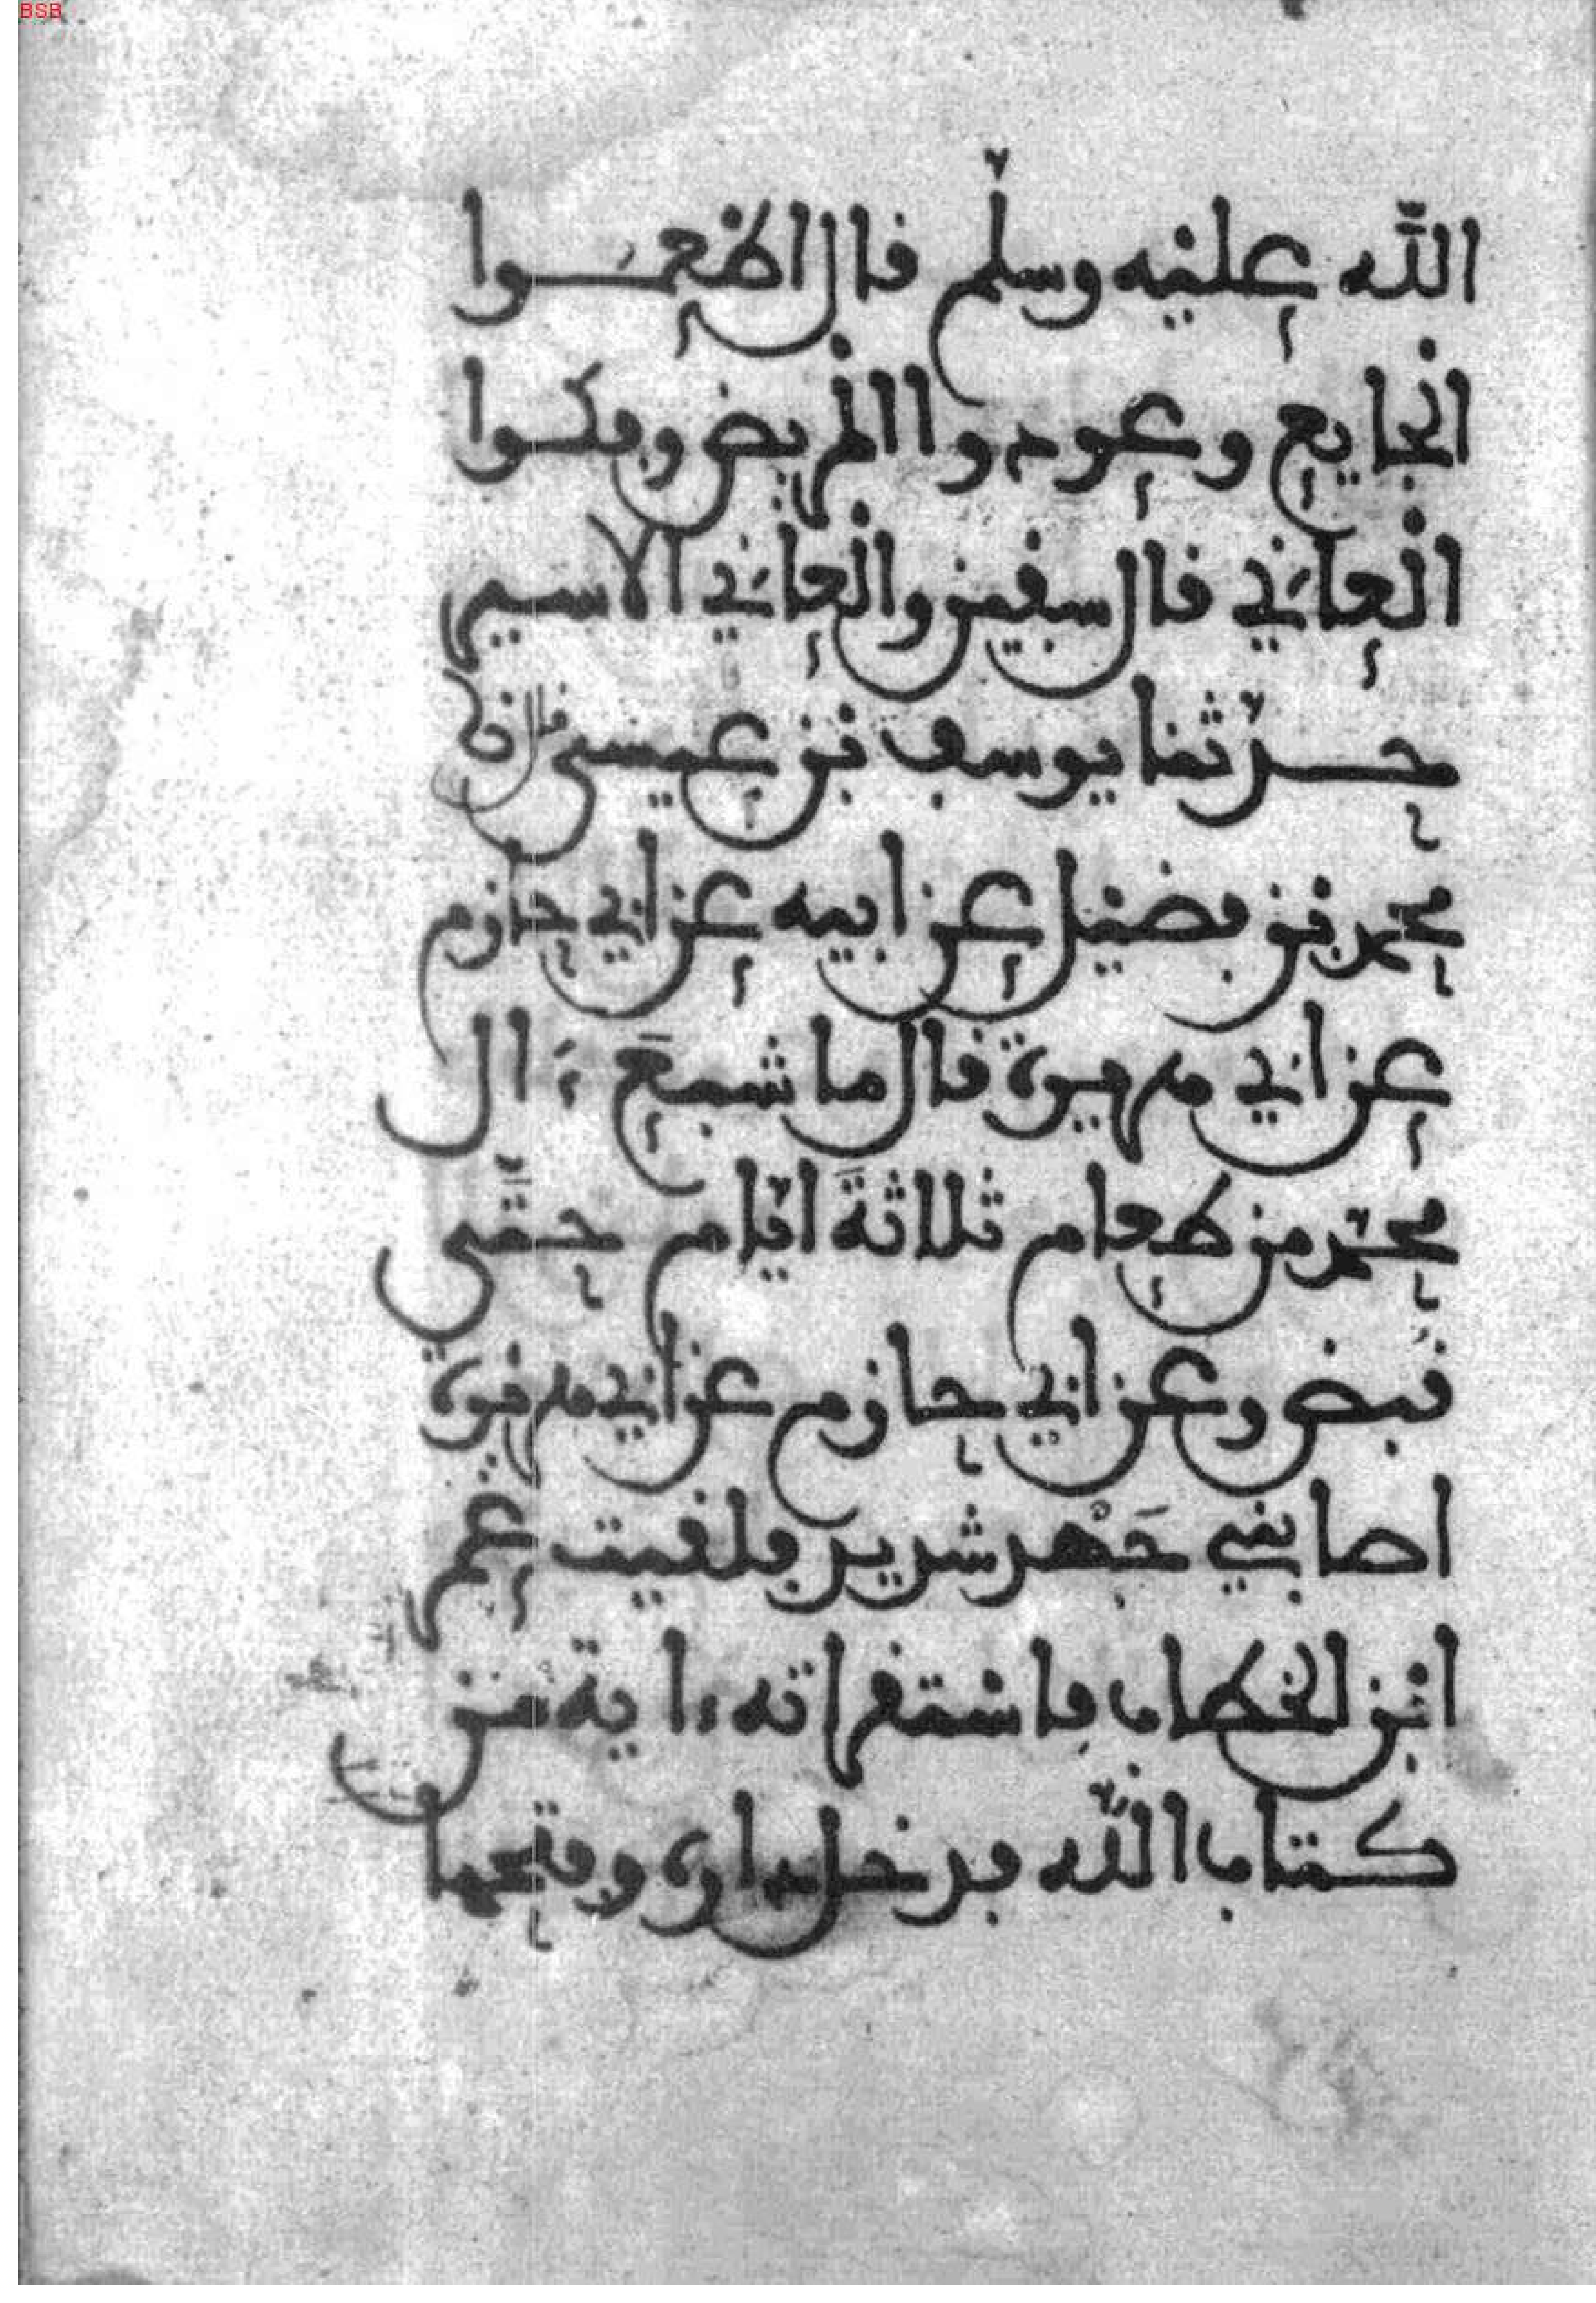 BSB
الله عليه وسلم قال اطعموا
الجايع وعودوا المريض وفكوا
العاني قال سفين والعاني الاسير
حدثنا يوسف بن عيسى قال نا
محمد بن فضيل عن ابيه عن ابي حازم
عن ابي هريرة قال ما شبع ءال
محمد من طعام ثلاثة ايام حتى
قبض وعن ابي حازم عن ابي هريرة
اصابني جهد شديد فلقيت عمر
ابن الخطاب فاستقراته ءاية من
كتاب الله فدخل داره وفتحها